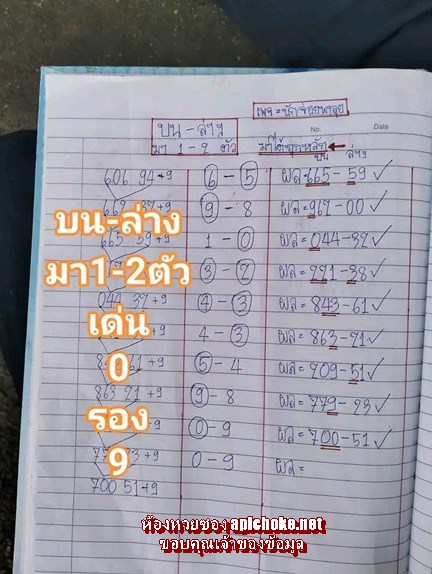 เพจ=นักจดขอหวย
บน-ล่าง
มา 1-2 ตัว
มาได้ทุกหลัก
No.
Date
บน ล่าง
606 94+9 6-5 ผล=665-59 ✓
9-8 ผล=962-00 ✓
665 59+9 1-0 ผล=044-32 ✓
3-2 ผล=221-38 ✓
044 32+9 4-3 ผล=843-61 ✓
4-3 ผล=863-21 ✓
61+9 5-4 ผล=209-51 ✓
863 21+9 9-8 ผล=779-23 ✓
0-9 ผล=700-51 ✓
+9 0-9 ผล=
700 51+9
บน-ล่าง
มา1-2ตัว
เด่น
0
รอง
9
ห้องหวยซอง apichoke.net
ขอบคุณเจ้าของข้อมูล